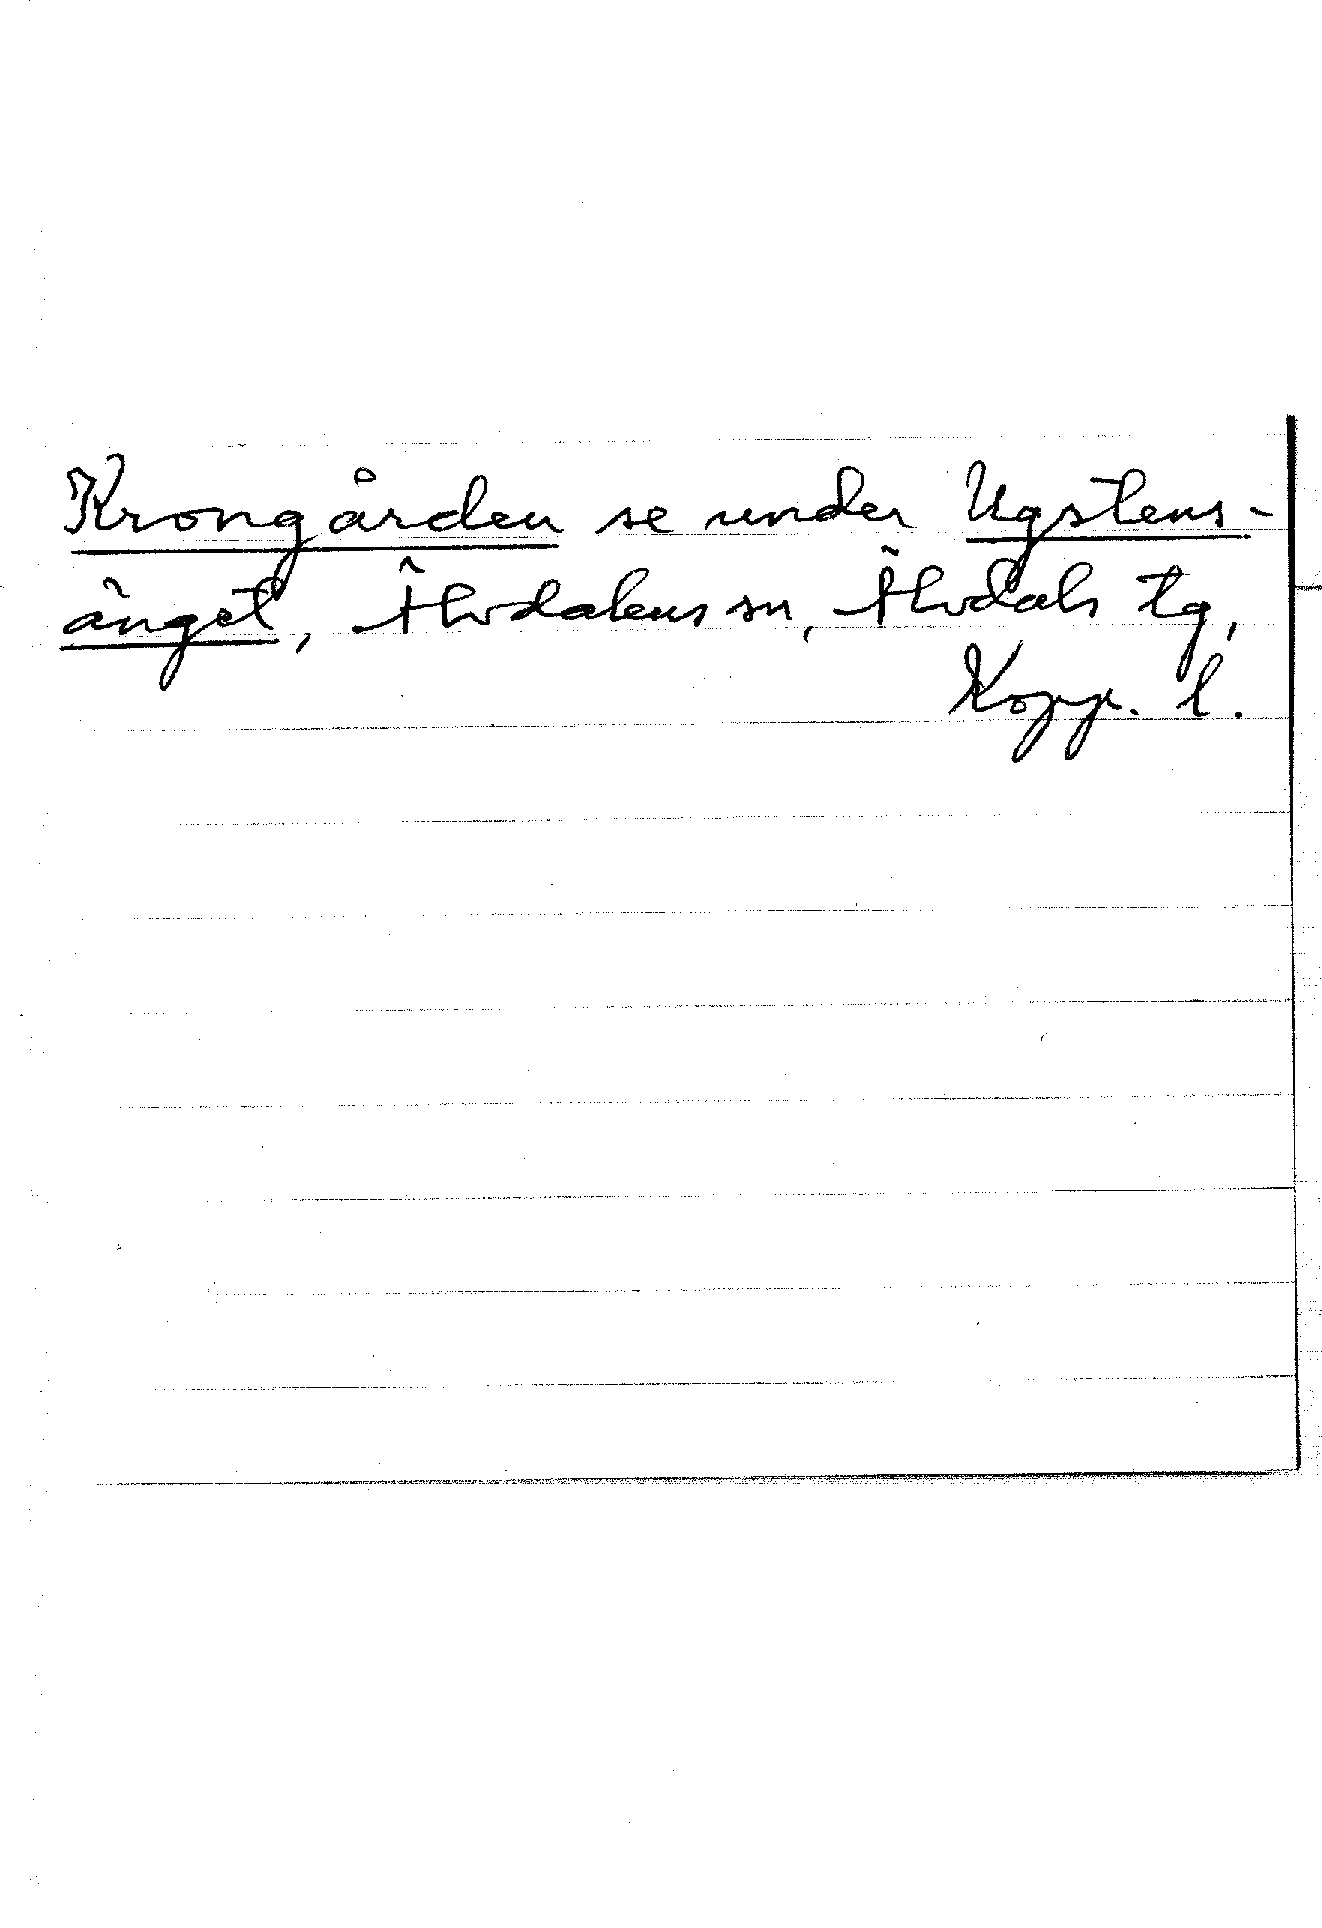 Krongården se under Ugstens-
änget, Älvdalens sn, Älvdals tg,
Kopp. l.